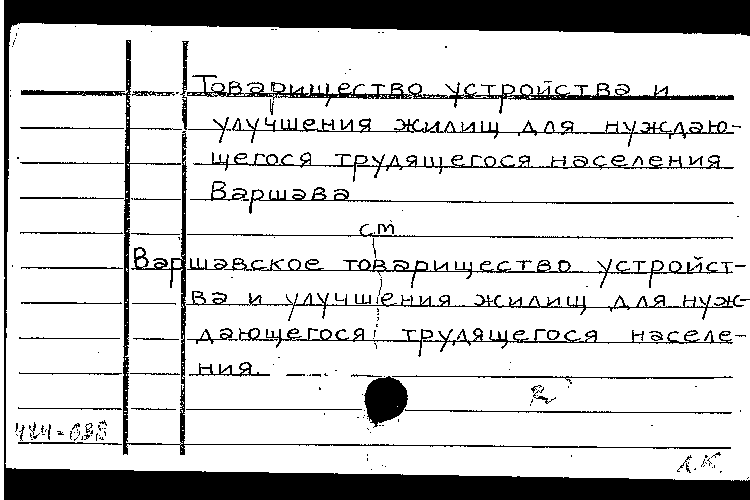 Товарищество устройства и
улучшения жилищ для нуждаю-
щегося трудящегося населения
Варшава
см
Варшавское товарищество устройст-
ва и улучшения жилищ для нуж-
дающегося трудящегося населе-
ния.
Л.К.